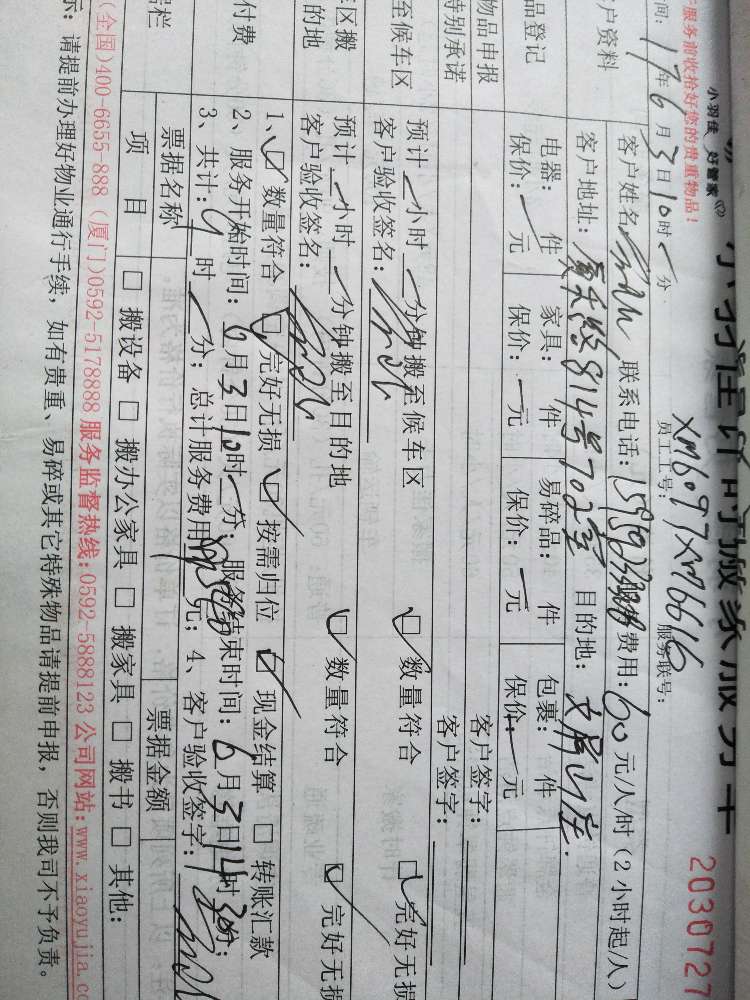 服务前收拾好您的贵重物品！
小羽佳 好管家
小羽佳计时搬家服务卡
2030727
员工工号：
XM6097XM6616
服务联号：
间：17年6月3日10时 分
户资料
客户姓名
联系电话：
费用：60元/小时（2小时起/人）
客户地址：
814号702室
目的地：
品登记
电器： 件
家具： 件
易碎品： 件
包裹： 件
保价： 元
保价： 元
保价： 元
保价： 元
物品申报
特别承诺
客户签字：
客户签字：
至候车区
预计 小时 分钟搬至候车区
客户验收签名：
□ 数量符合
□ 完好无损
区搬
的地
预计 小时 分钟搬至目的地
客户验收签名：
□ 数量符合
□ 完好无损
付费
1、□ 数量符合 □ 完好无损 □ 按需归位 □ 现金结算 □ 转账汇款
2、服务开始时间：6月3日10时 分；服务结束时间：6月3日14时30分；
3、共计：4时 分；总计服务费用 元；4、客户验收签字：
栏
票据名称
票据金额
项 目
□ 搬设备 □ 搬办公家具 □ 搬家具 □ 搬书 □ 其他：
(全国)400-6655-888 (厦门)0592-5178888 服务监督热线：0592-5888123 公司网站：www.xiaoyujia.co
示：请提前办理好物业通行手续，如有贵重、易碎或其它特殊物品请提前申报，否则我司不予负责。